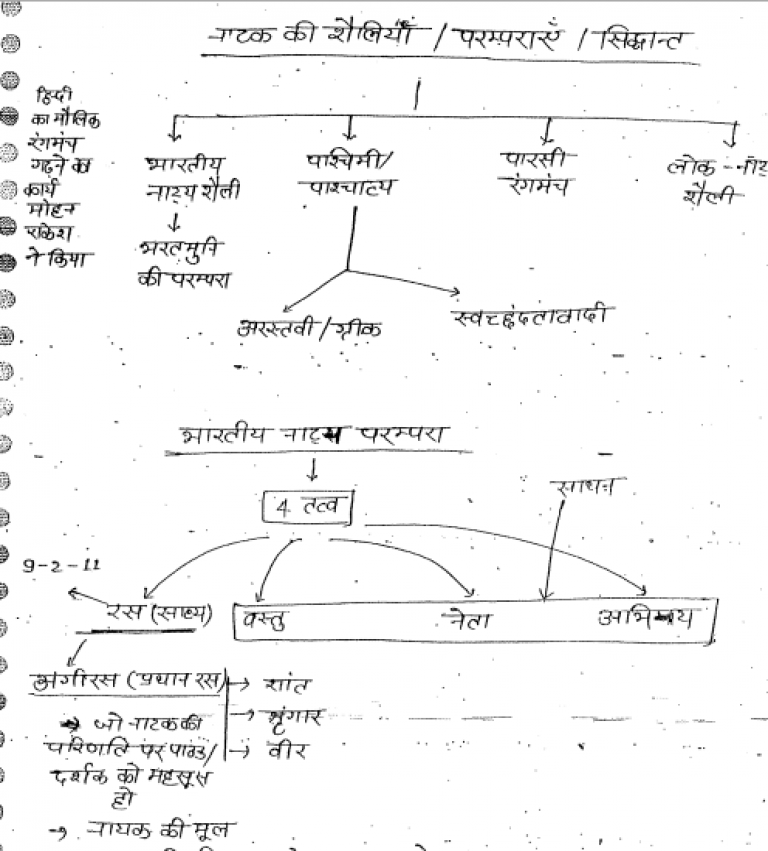 नाटक की शैलियाँ / परम्पराएँ / सिद्धान्त
हिन्दी
का मौलिक
रंगमंच
गढ़ने का
कार्य
मोहन
राकेश
ने किया
भारतीय
नाट्य शैली
भरतमुनि
की परम्परा
पाश्चिमी/
पाश्चात्य
पारसी
रंगमंच
लोक - नाट्य
शैली
अरस्तवी / ग्रीक
स्वच्छंदतावादी
भारतीय नाट्य परम्परा
4 तत्व
साधन
9-2-11
रस (साध्य)
वस्तु नेता अभिनय
अंगीरस (प्रधान रस)
→ शांत
→ श्रृंगार
→ वीर
→ जो नाटक की
परिणति पर पाठक/
दर्शक को महसूस
हो
→ नायक की मूल